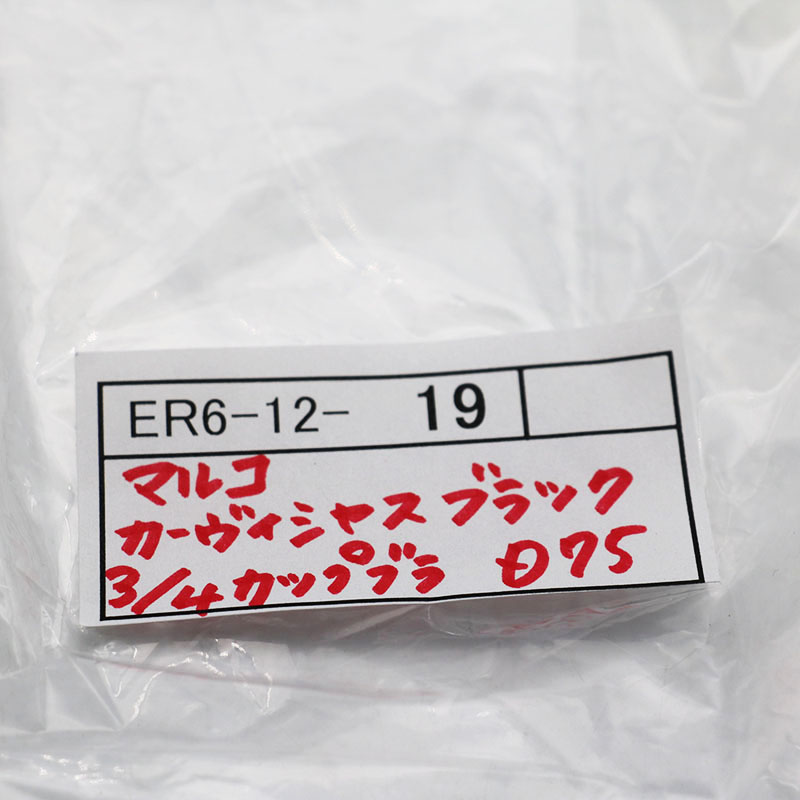 ER6-12- 19
マルコ
カーヴィシャス ブラック
3/4カップブラ D75